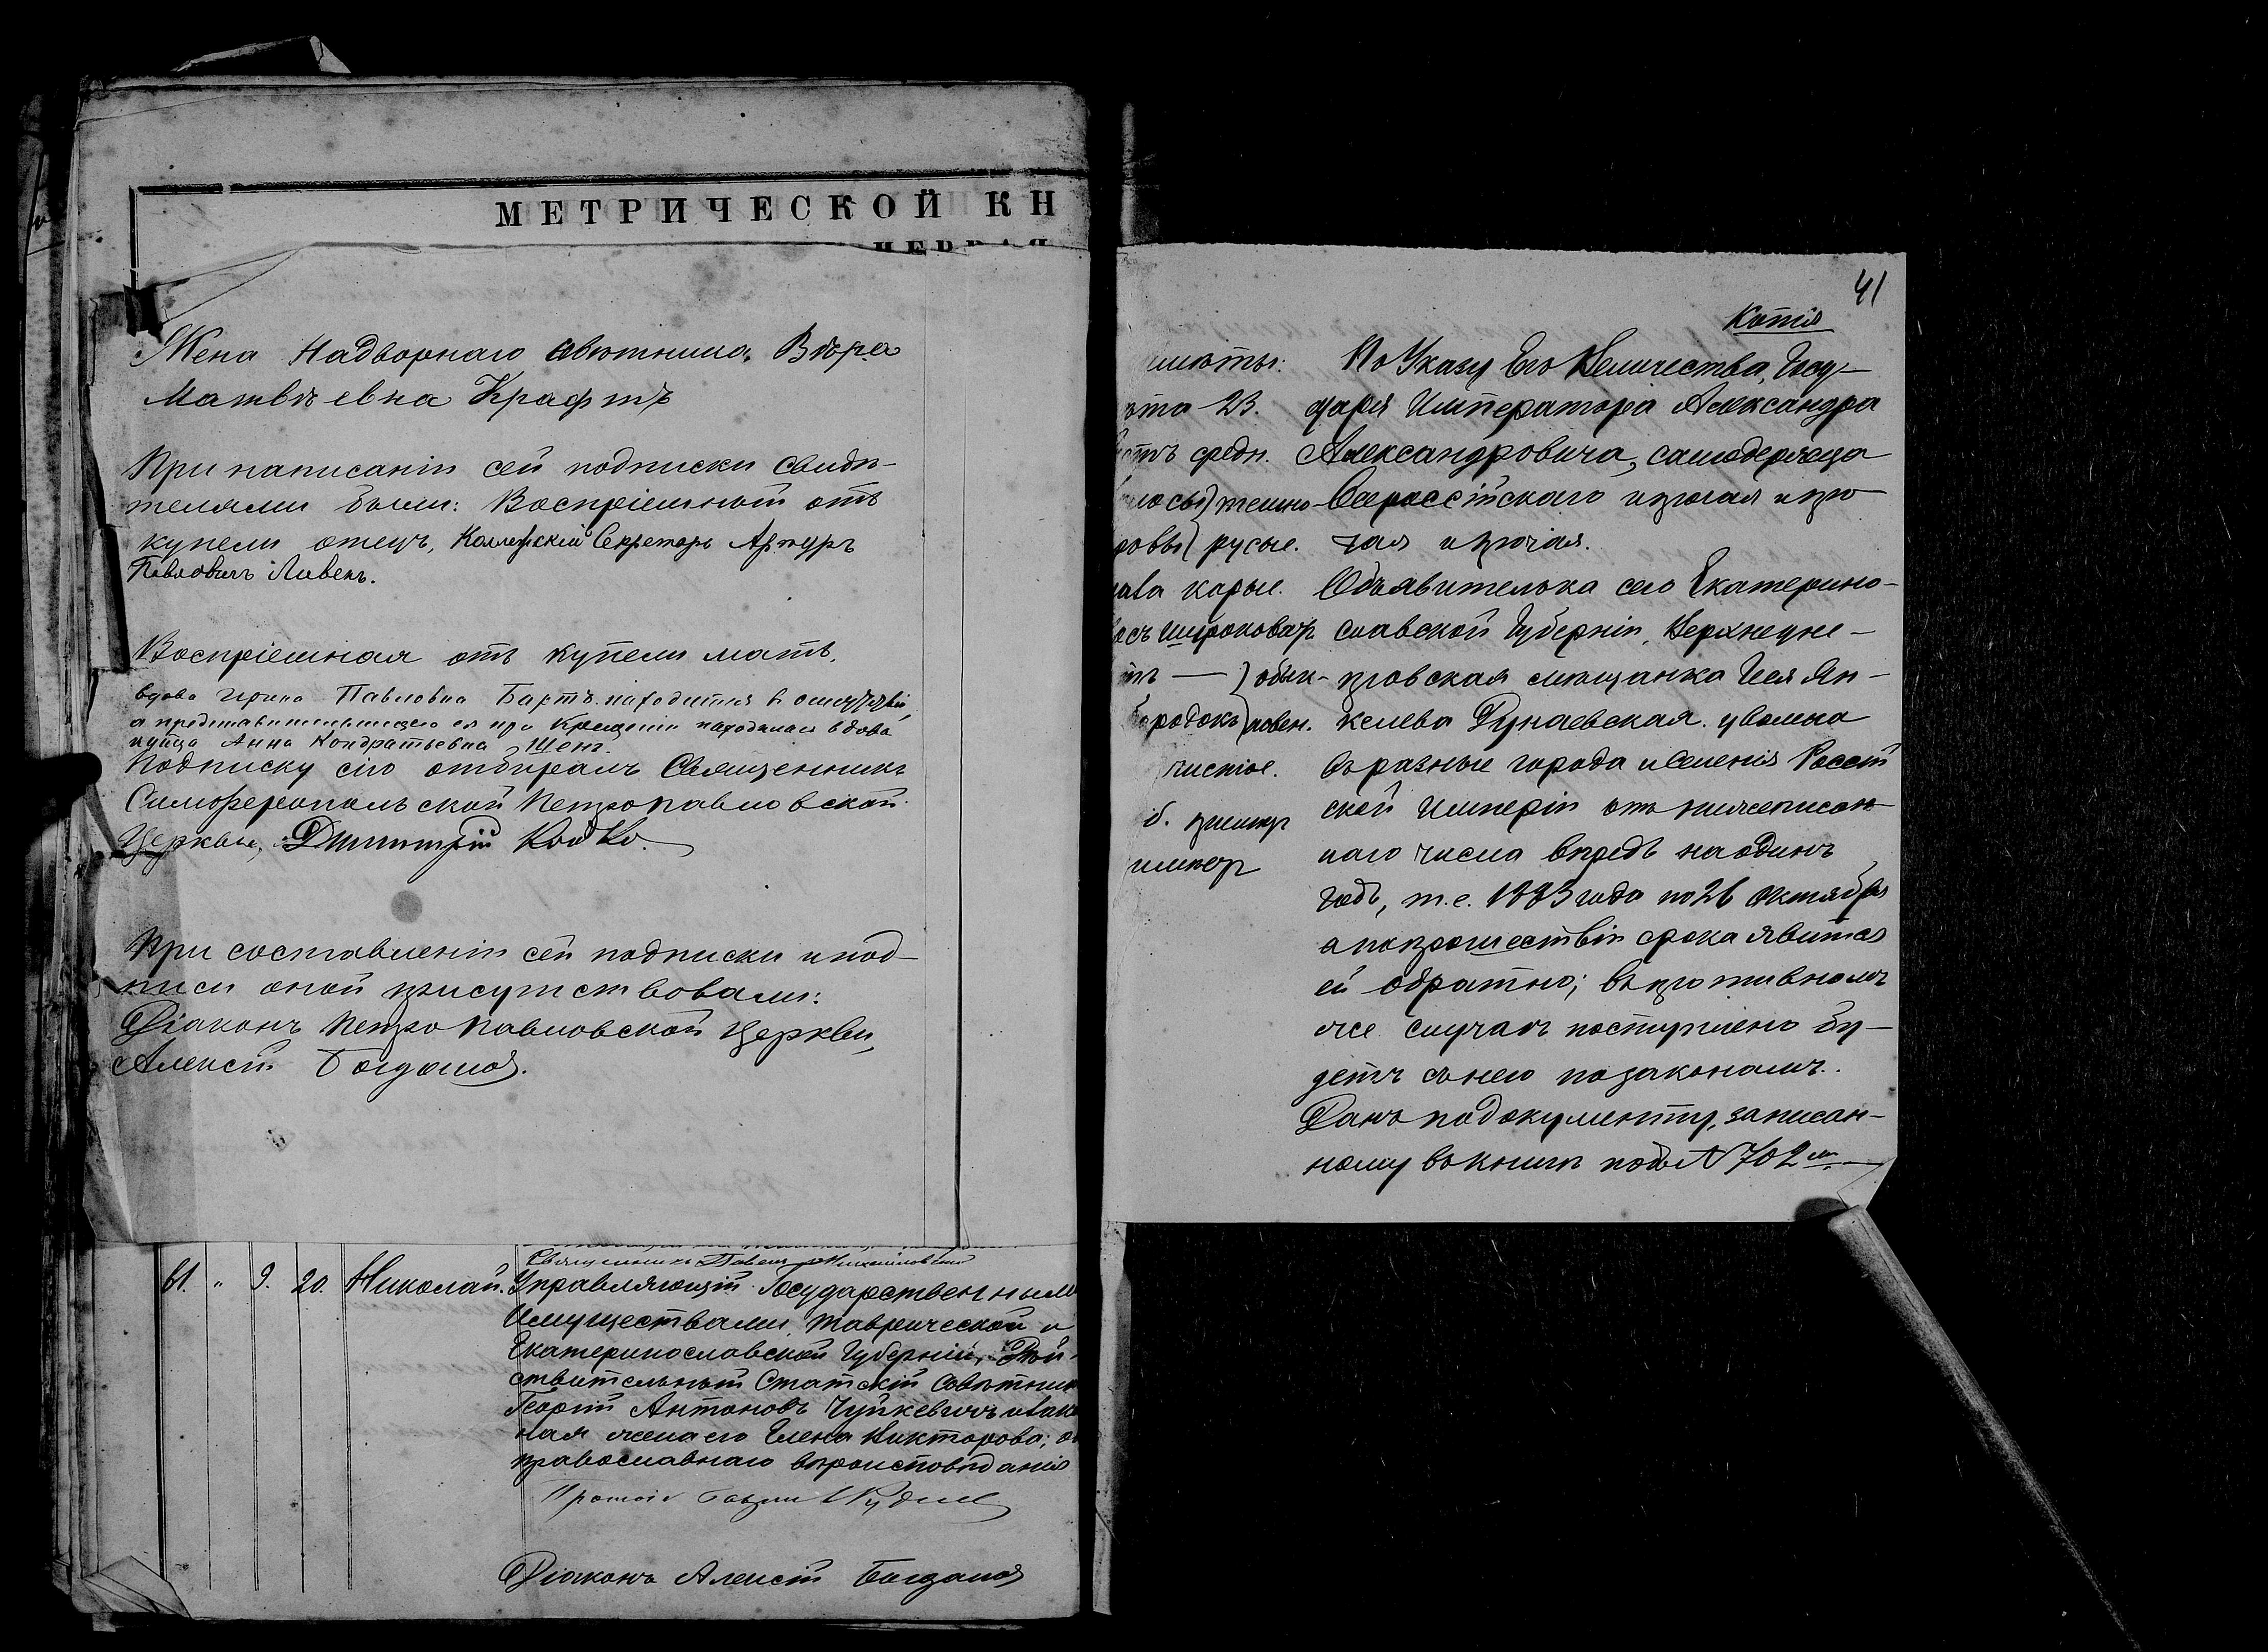 МЕТРИЧЕСКОЙ КН
Жена Надворнаго Совѣтника, Вѣра
Матвѣевна Крафтъ
При написаніи сей подписки свидѣ-
телями были: Воспріемный отъ
купели отецъ, Коллежскій Секретарь Артуръ
Павловичъ Ливенъ.
Воспріемная отъ купели мать,
вдова Ирина Павловна Бартъ находится в отсутствіи,
а представительницею ея при Крещеніи находилась вдова
купца Анна Кондратьевна Щенъ.
Подписку сію отбиралъ Священникъ
Симферопольской Петропавловской
Церкви, Димитрій Койко.
При составленіи сей подписки и под-
писи оной присутствовали:
Діаконъ Петропавловской Церкви,
Алексѣй
61. " 9. 20. Николай. Управляющій Государственным
Имуществами, Таврической и
Екатеринославской Губерній, Дѣй-
ствительный Статскій Совѣтник
Георгій Антоновъ Чуйкевичъ и зако
ная жена его Елена Викторова; о
православнаго вѣроисповѣданія
Діаконъ Алексѣй
41
Копія
имѣты:
ѣта 23.
стъ средн.
лосы} темно-
ровы} русые.
глаза карые.
осъ широковат
тъ — } обык-
бородокъ} новен.
чистое.
По Указу Его Величества, Госу-
даря Императора Александра
Александровича, самодержца
Всероссійскаго и прочая и про-
чая и прочая.
Объявителька сего Екатерино-
славской Губерніи, Верхнедне-
провская мѣщанка Лея Ян-
келева Дунаевская. уволена
въ разные города и селенія Россій
ской Имперіи отъ нижеписан-
наго числа впредь на одинъ
годъ, т.е. 1883 года по 26 Октября
а по прошествіи срока явится
ей обратно; въ противномъ
же случаѣ поступлено бу-
детъ съ нею по законамъ.
Данъ по документу, записан-
ному въ книгѣ подъ № 702 мъ.